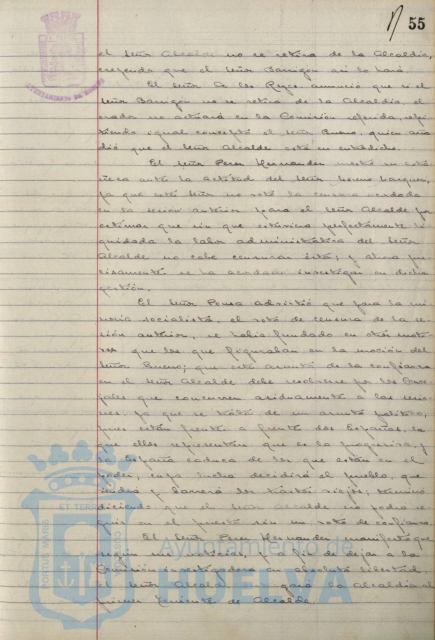 55
el Señor Alcalde no se retira de la Alcaldía,
creyendo que el Señor Barrigón así lo hará.
El Señor de los Reyes, anunció que si el
Señor Barrigón no se retira de la Alcaldía, el
orador no actuará en la Comisión referida,
igual concepto el Señor Bueno, quien aña
dió que el Señor Alcalde está en entredicho.
El Señor Perez Hernandez mostró su
ante la actitud del Señor
ya que este Señor no votó la censura acordada
en la sesión anterior para el Señor Alcalde por
estimar que sin que estuviera perfectamente li
quidada la labor administrativa del Señor
Alcalde no cabe censurar ésta; y ahora pre
cisamente se ha acordado investigar en dicha
gestión.
El Señor Ponsa advirtió que para la mi
noría socialista, el voto de censura de la se
sión anterior, se había fundado en otros moti
vos que los que figuraban en la moción del
Señor Bueno; que este asunto de la confianza
en el Señor Alcalde debe resolverse por los Conce
jales que concurren asiduamente a las sesio
nes, ya que se trata de un asunto político,
pues están frente a frente dos Españas, la
que ellos representan que es la progresiva, y
la España caduca de los que están en el
poder, cuya lucha decidirá el pueblo, que
y barrerá los viejos; terminó
diciendo que el Señor Alcalde no podía se
guir en el puesto sin un voto de confianza.
El Señor Perez Hernandez manifestó que
según su criterio y a fin de dejar a la
Comisión investigadora en absoluta libertad,
el Señor Alcalde la Alcaldía al
primer Teniente de Alcalde.
Ayuntamiento de
HUELVA
PORTUS MARIS
ET TERRAE
CUSTODIA